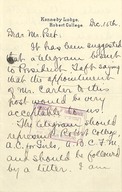 Kennedy Lodge,
Robert College.
Dec. 15th
Dear Mr Peet.
It has been suggested
that a telegram be sent
to President Taft saying
that the appointment
of Mr. Carter to this
post would be very
acceptable
The telegram should
represent Robert College,
A.C. for Girls, A.B.C.F.M.
and should be followed
by a letter. I am